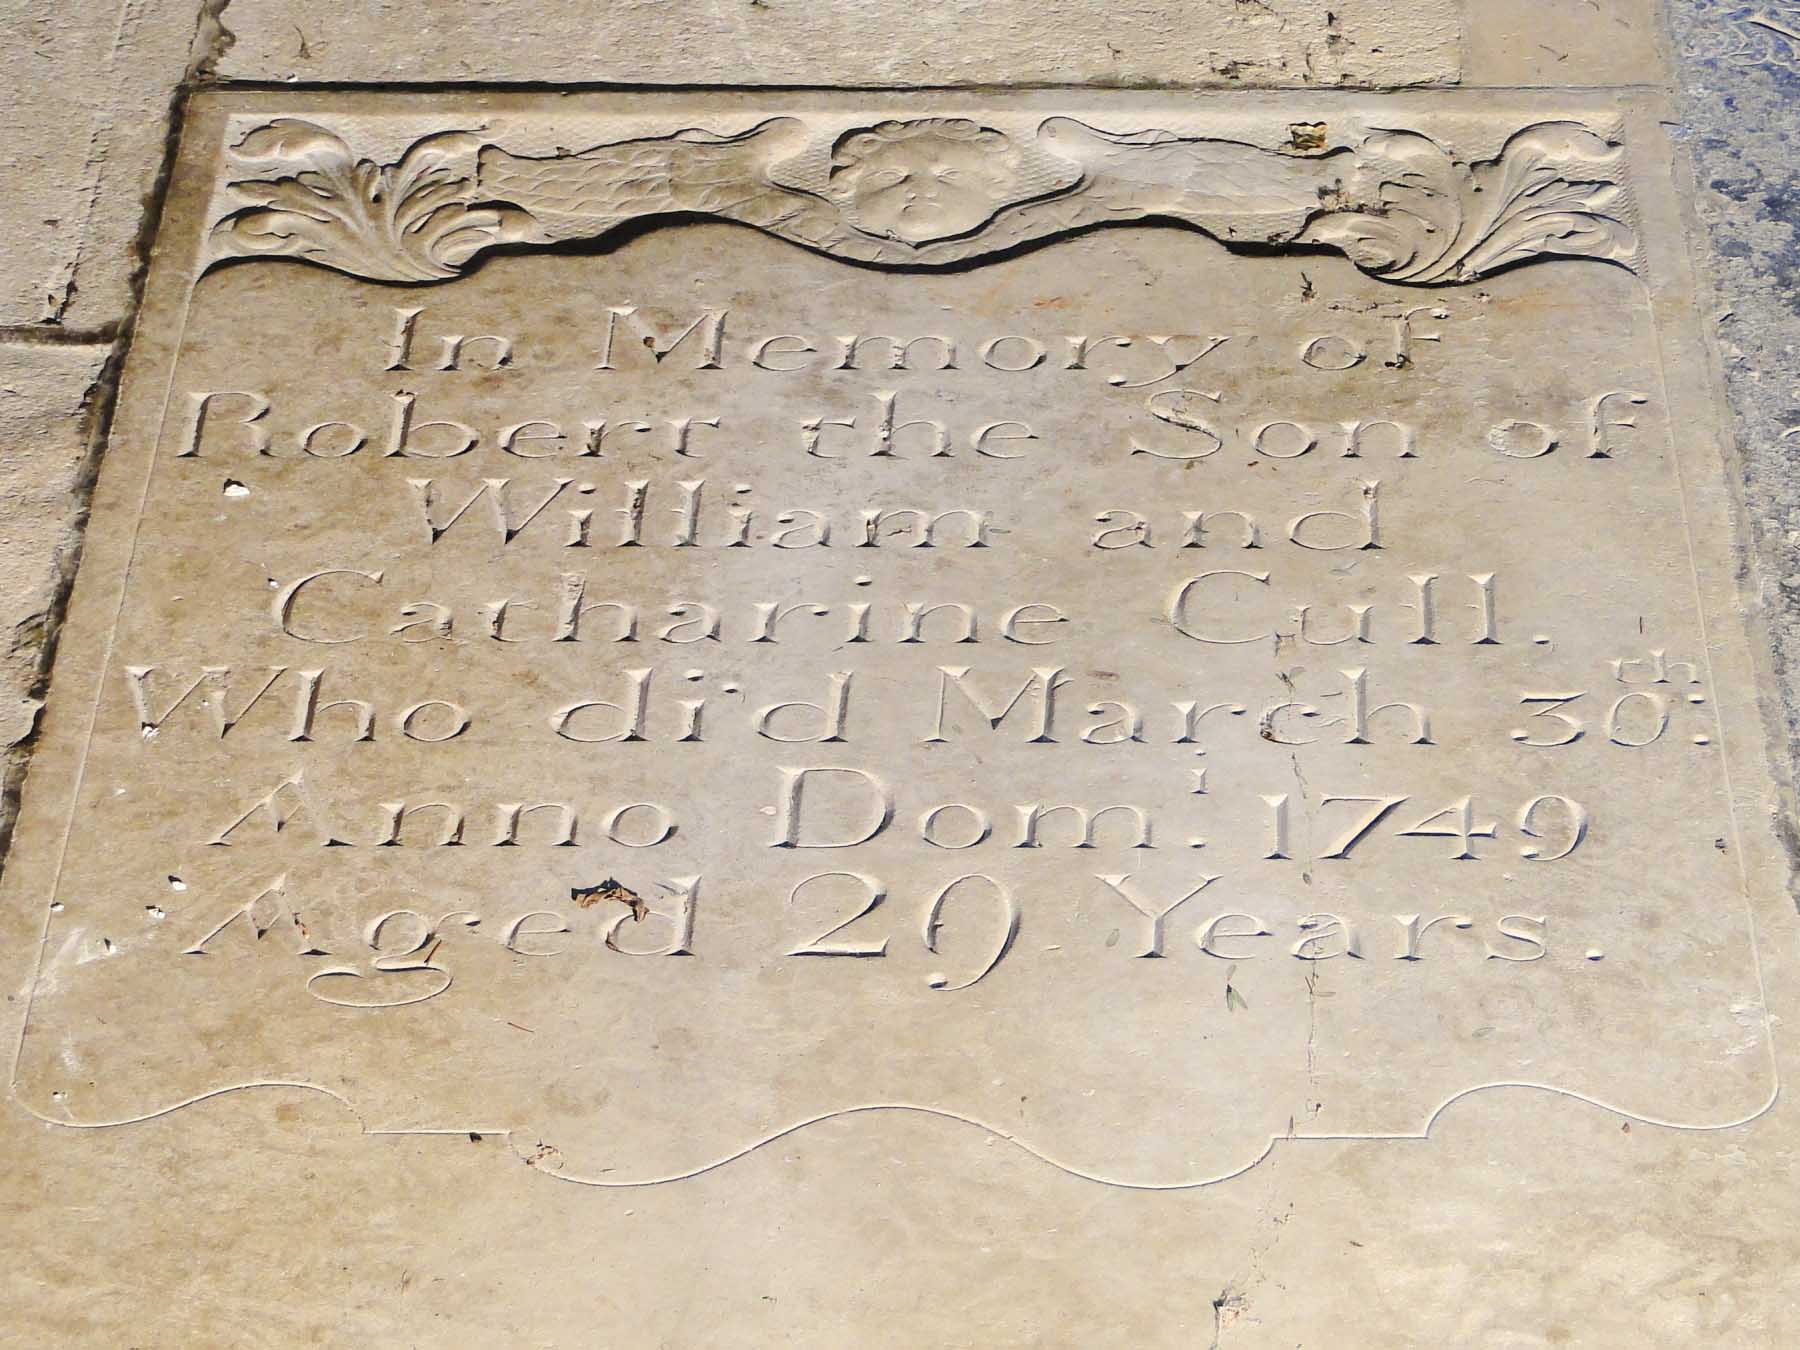 In Memory of
Robert the Son of
William and
Catharine Cull.
Who di'd March 30th:
Anno Dom.i 1749
Aged 29 Years.